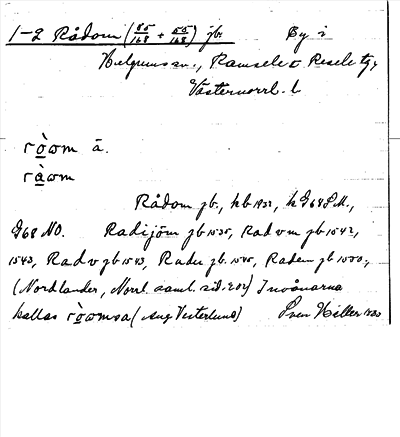 1-2 Rådom (85/168 + 55/168) jb. By i
Helgums sn., Ramsele o. Resele tg,
Västernorrl. l
ròwm ä.
ràwm
Rådom jb., kb 1932, k G68 S.M.,
G68 NO. Radijöm jb 1535, Radvm jb 1542,
1543, Radv gb 1543, Radu jb. 1545, Radem jb 1550,
(Nordlander, Norrl. saml. sid. 202) Invånarna
kallas ròwmsa (Aug Vesterlund) Sven Hiller 1933